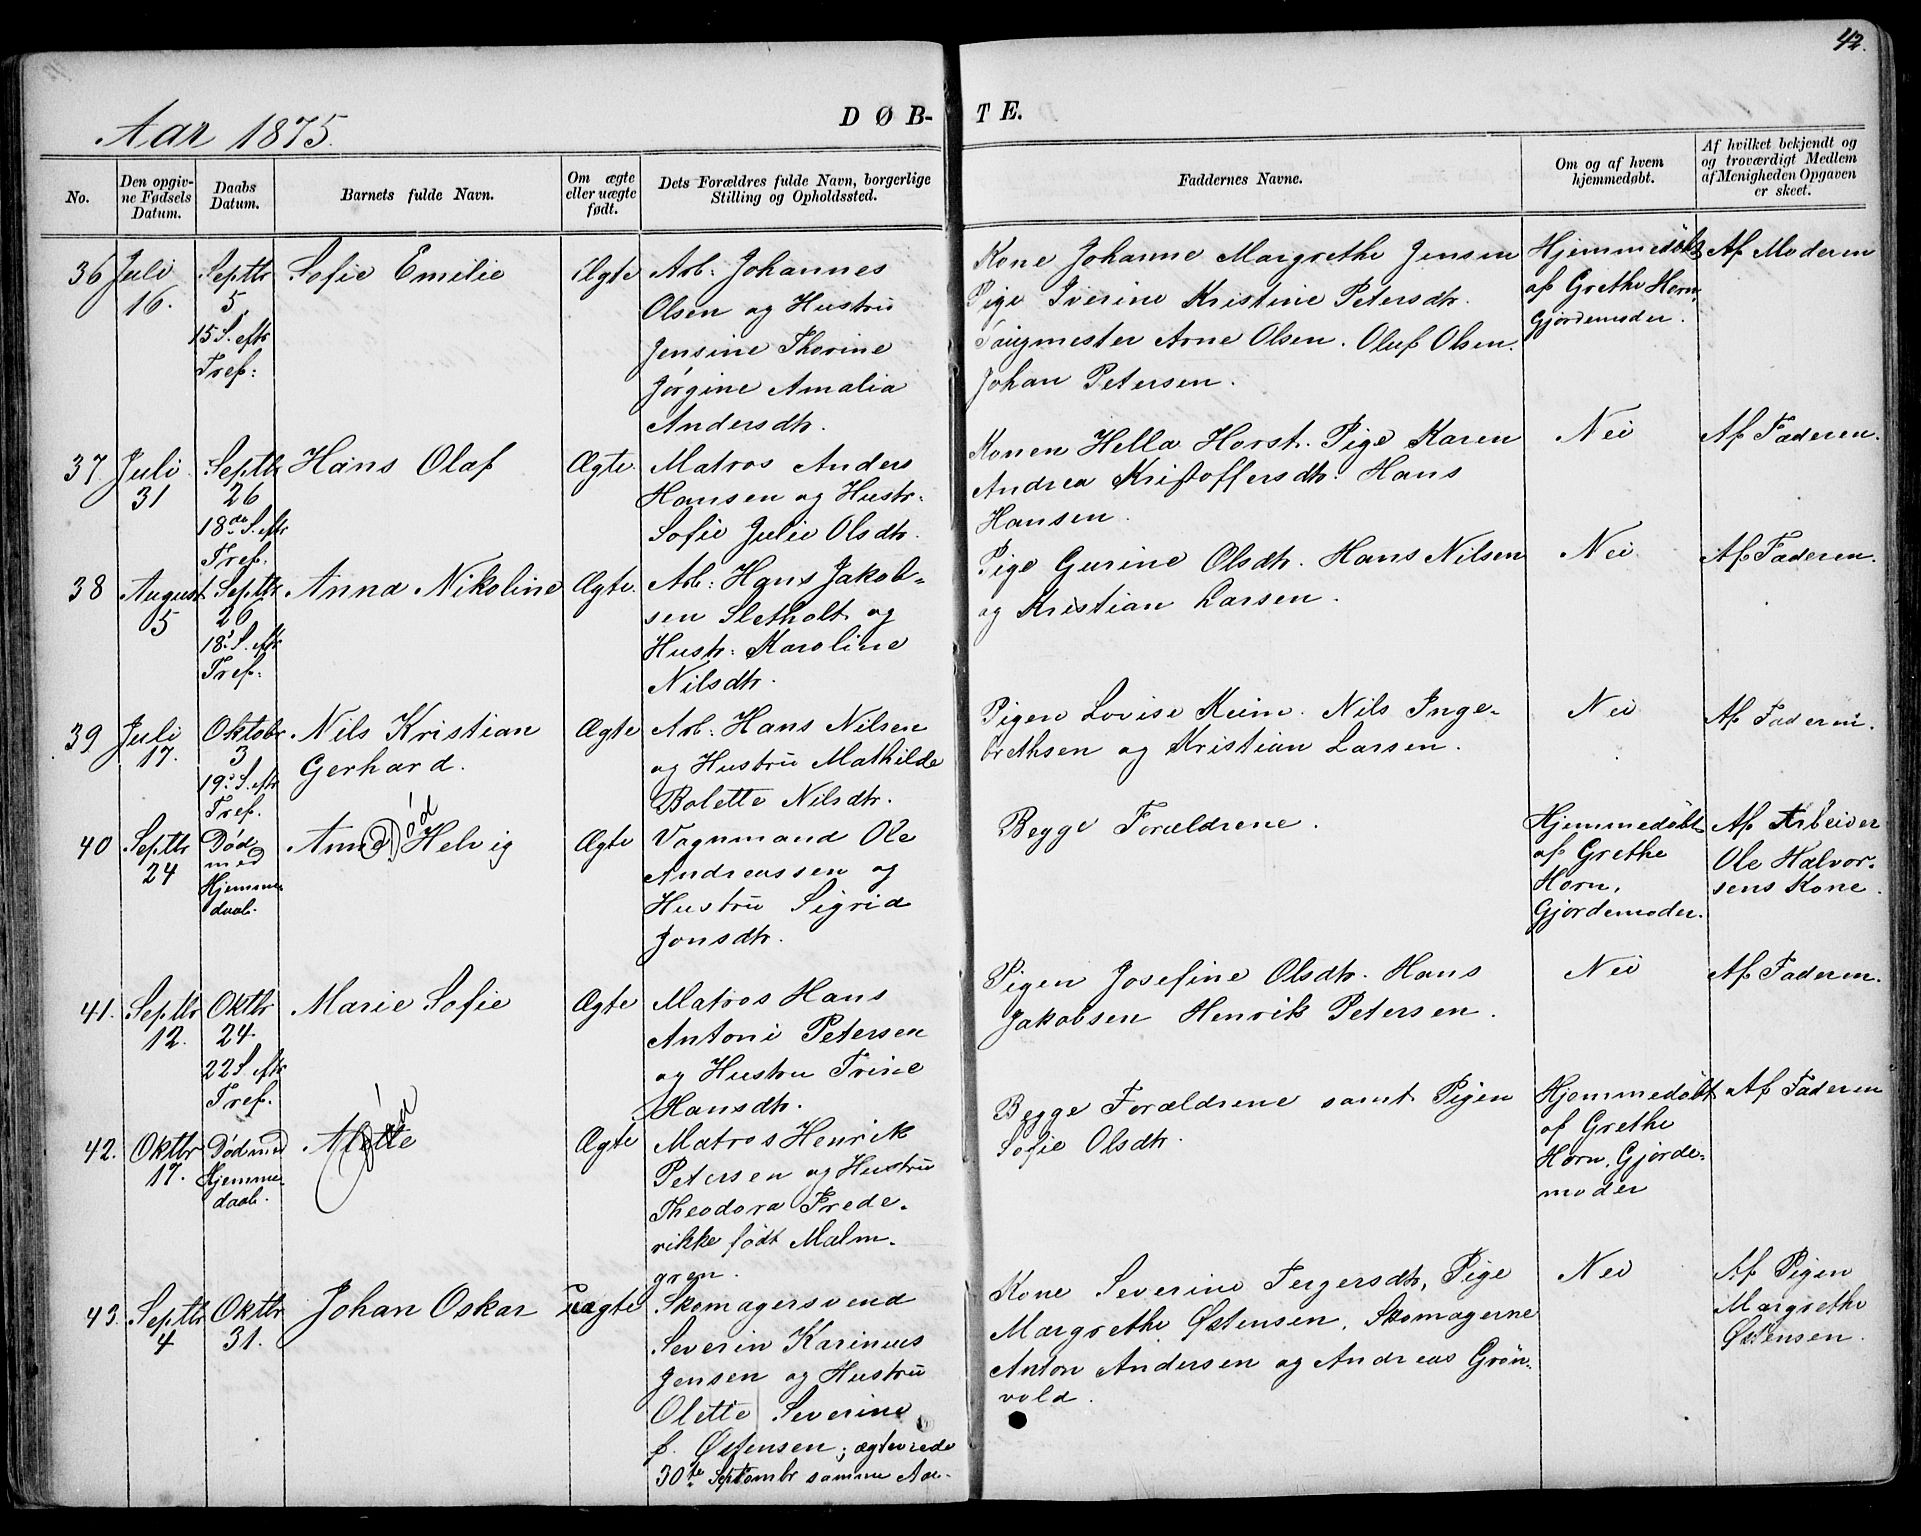 42.
Aar 1875.
DØB-TE.
No.
Den opgiv-
ne Fødsels
Datum.
Daabs
Datum.
Barnets fulde Navn.
Om ægte
eller uægte
født.
Dets Forældres fulde Navn, borgerlige
Stilling og Opholdssted.
Faddernes Navne.
Om og af hvem
hjemmedøbt.
Af hvilket bekjendt og
og troværdigt Medlem
af Menigheden Opgaven
er skeet.
36
Juli
16.
Septbr
5
15 S. eftr
Tref:
Sofie Emilie
Ægte
Arb: Johannes
Olsen og Hustru
Jensine Thorine
Jørgine Amalia
Andersdtr.
Kone Johanne Margrethe Jensen
Pige Iverine Kristine Petersdtr.
Taugmester Arne Olsen. Oluf Olsen.
Johan Petersen.
Hjemmedøbt
af Grethe Horn,
Gjordemoder.
Af Moderen
37.
Juli
31
Septbr
26
18de S. eftr
Tref.
Hans Olaf
Ægte
Matros Anders
Hansen og Hustr.
Sofie Julie Olsdtr.
Konen Hella Horst. Pige Karen
Andrea Kristoffersdtr. Hans
Hansen.
Nei
Af Faderen.
38
August
5
Septbr
26
18. S. eftr
Tref:
Anna Nikoline
Ægte.
Arb: Hans Jakob-
sen Sletholt og
Hustr: Karoline
Nilsdtr.
Pige Gurine Olsdtr. Hans Nilsen
og Kristian Larsen.
Nei
Af Faderen.
39
Juli
17.
Oktobr
3
19. S. eftr
Tref.
Nils Kristian
Gerhard.
Ægte
Arb. Hans Nilsen
og Hustru Mathilde
Bolette Nilsdtr.
Pigen Lovise Keim. Nils Inge-
brethsen og Kristian Larsen.
Nei
Af Faderen.
40
Septbr
24
Død
med
Hjemme-
daab.
Anna Helvig
Død
Ægte
Vognmand Ole
Andreassen og
Hustru Sigrid
Jonsdtr.
Begge Forældrene.
Hjemmedøbt
af Grethe
Horn,
Gjordemoder.
Af Arbeider
Ole Halvor-
sens Kone.
41.
Septbr
12.
Oktbr
24.
22 S. eftr
Tref.
Marie Sofie
Ægte
Matros Hans
Antoni Petersen
og Hustru Trine
Hansdtr.
Pigen Josefine Olsdtr. Hans
Jakobsen Henrik Petersen.
Nei
Af Faderen.
42.
Oktbr
17.
Død med
Hjemme-
daab.
Alette
Død
Ægte
Matros Henrik
Petersen og Hustru
Theodora Frede-
rikke født Malm-
gren.
Begge Forældrene samt Pigen
Sofie Olsdtr.
Hjemmedøbt
af Grethe
Horn, Gjorde-
moder
Af Faderen
43.
Septbr
4
Oktbr
31.
Johan Oskar
uægte
Skomagersvend
Severin Karinius
Jensen og Hustru
Olette Severine
f. Østensen; ægteviede
30te Septembr samme Aar.
Kone Severine Tergersdtr, Pige
Margrethe Østensen, Skomagerne
Anton Andersen og Andreas Grøn-
vold.
Nei
Af Pigen
Margrethe
Østensen.